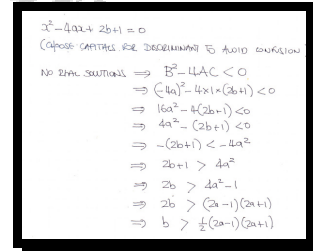 x² - 4ax + 2b+1 = 0
(CHOOSE CAPITALS FOR DISCRIMINANT TO AVOID CONFUSION
NO REAL SOLUTIONS ⇒ B² - 4AC < 0
⇒ (-4a)² - 4×1×(2b+1) < 0
⇒ 16a² - 4(2b+1) < 0
⇒ 4a² - (2b+1) < 0
⇒ -(2b+1) < -4a²
⇒ 2b+1 > 4a²
⇒ 2b > 4a² - 1
⇒ 2b > (2a-1)(2a+1)
⇒ b > ½(2a-1)(2a+1)